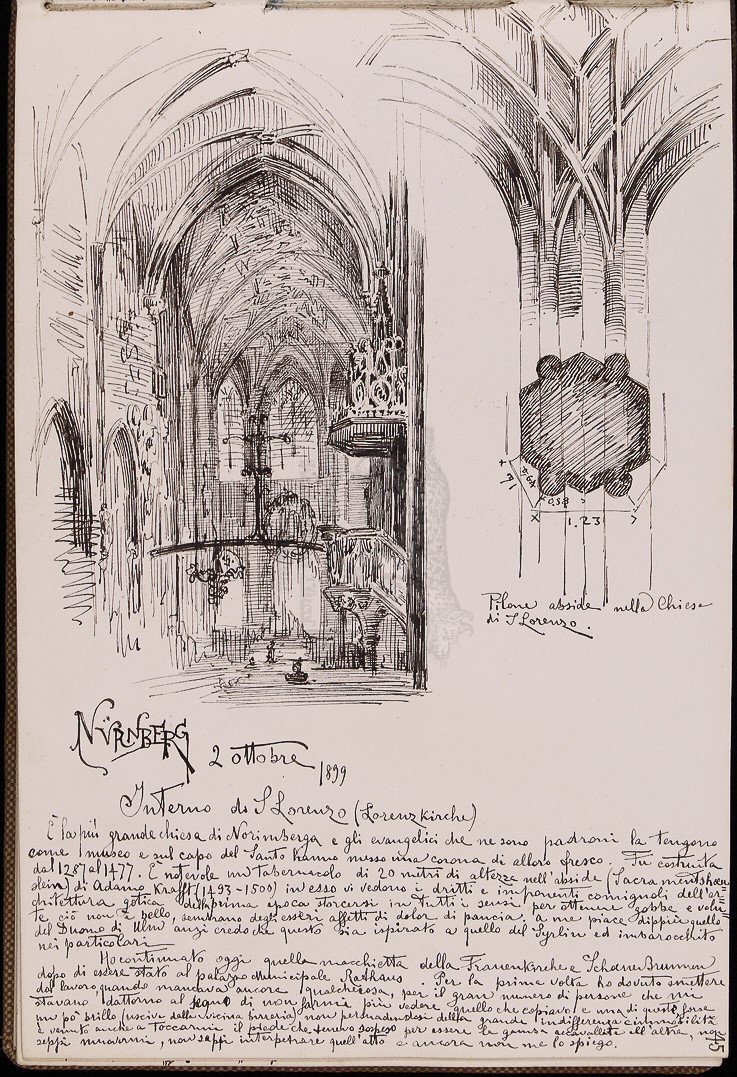 + 91
0.64
0.58
1.23
Pilone abside nella Chiesa
di S Lorenzo.
NÜRNBERG
2 ottobre 1899
Interno di S Lorenzo (Lorenzkirche)
È la più grande chiesa di Norimberga e gli evangelici che ne sono padroni la tengono
come museo e sul capo del Santo hanno messo una corona di alloro fresco. Fu costruita
dal 1287 al 1477. È notevole un tabernacolo di 20 metri di altezza nell'abside (Sacramentshaeu
slein) di Adamo Kraft (1493-1500) in esso vi vedono i dritti e imponenti comignoli dell'ar=
chitettura gotica della prima epoca storcersi in tutti i sensi per ottenere gobbe e volu=
te ciò non è bello, sembrano degli esseri affetti di dolor di pancia. a me piace dippiù quello
del Duomo di Ulm anzi credo che questo sia ispirato a quello del Syrlin ed imbarocchito
nei particolari
Ho continuato oggi quella macchietta della Frauenkirche e Schöner Brunnen
dopo di essere stato al palazzo Municipale Rathaus. Per la prima volta ho dovuto smettere
dal lavoro, quando mancava ancora qualchecosa, per il gran numero di persone che mi
stavano dattorno al segno di non farmi più vedere quello che copiavo e una di queste forse
un pò brillo (usciva dalla vicina birreria) non persuadendosi della grande indifferenza e immobilità
è venuto anche a toccarmi il piede che tenevo sospeso per essere la gamba accavallata all'altra, non
seppi muovermi, non seppi interpetrare quell'atto e ancora non me lo spiego.
45